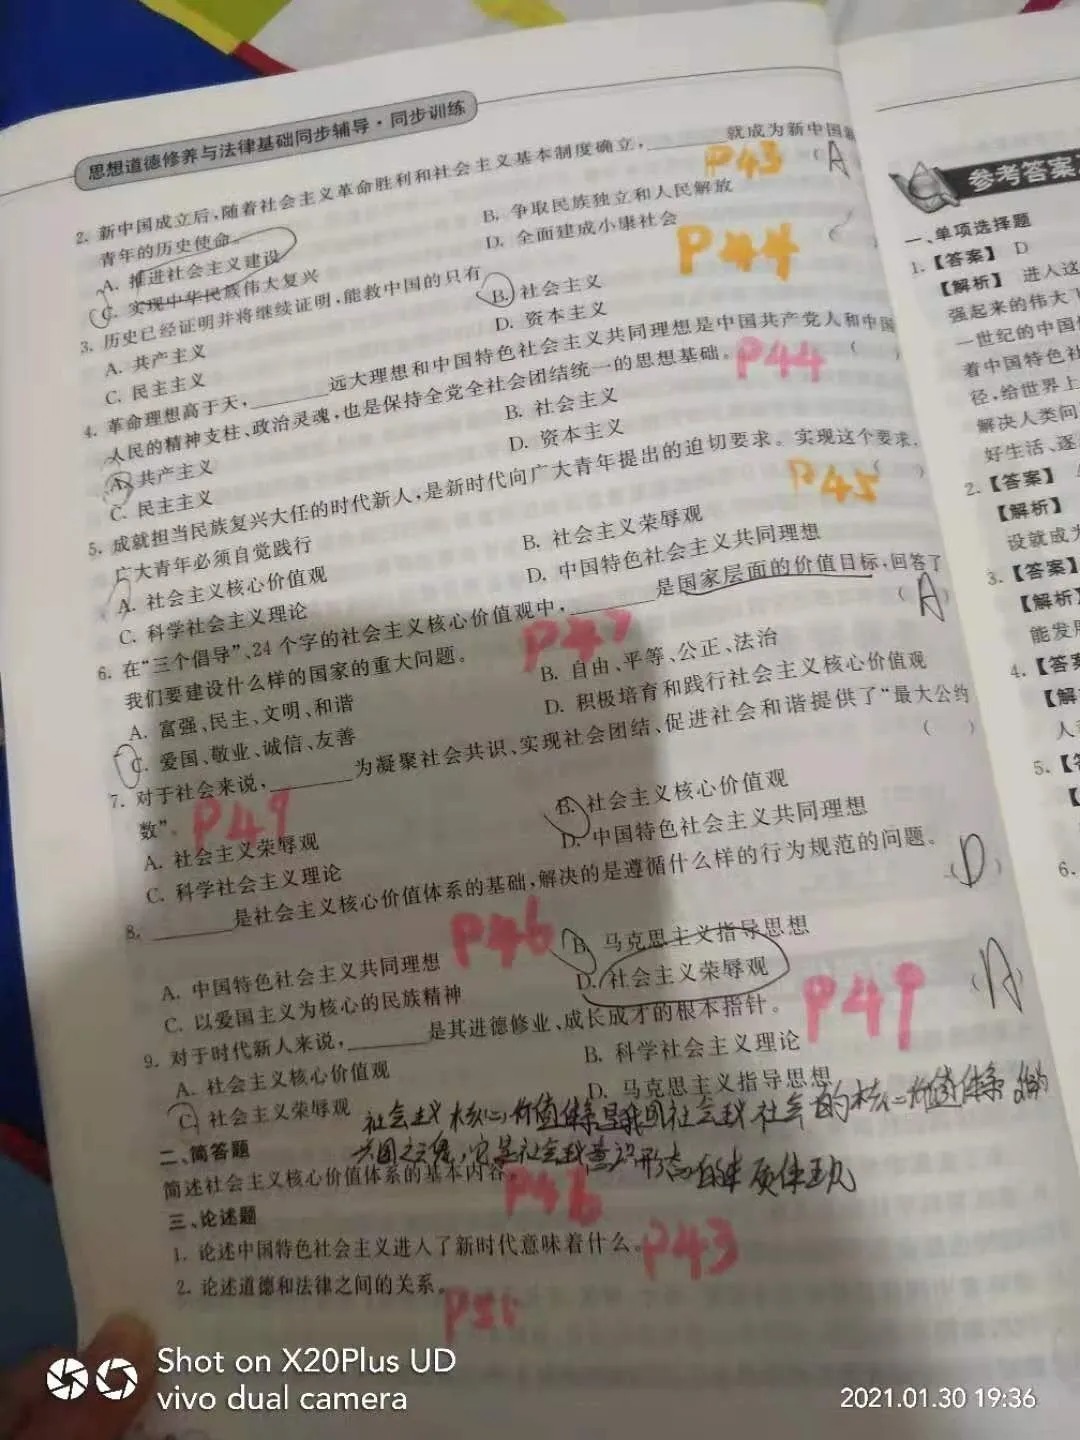 思想道德修养与法律基础同步辅导·同步训练
2. 新中国成立后,随着社会主义革命胜利和社会主义基本制度确立,________就成为新中国
青年的历史使命。
P43
A
A. 推进社会主义建设
B. 争取民族独立和人民解放
C. 实现中华民族伟大复兴
D. 全面建成小康社会
P44
3. 历史已经证明并将继续证明,能救中国的只有
A. 共产主义
B. 社会主义
C. 民主主义
D. 资本主义
4. 革命理想高于天,________远大理想和中国特色社会主义共同理想是中国共产党人和中国
人民的精神支柱、政治灵魂,也是保持全党全社会团结统一的思想基础。
P44
A. 共产主义
B. 社会主义
C. 民主主义
D. 资本主义
5. 成就担当民族复兴大任的时代新人,是新时代向广大青年提出的迫切要求。实现这个要求,
广大青年必须自觉践行
P45
A. 社会主义核心价值观
B. 社会主义荣辱观
C. 科学社会主义理论
D. 中国特色社会主义共同理想
6. 在“三个倡导”、24个字的社会主义核心价值观中,________是国家层面的价值目标,回答了
我们要建设什么样的国家的重大问题。
P47
A
A. 富强、民主、文明、和谐
B. 自由、平等、公正、法治
C. 爱国、敬业、诚信、友善
D. 积极培育和践行社会主义核心价值观
7. 对于社会来说,________为凝聚社会共识、实现社会团结、促进社会和谐提供了“最大公约
数”。
P49
A. 社会主义荣辱观
B. 社会主义核心价值观
C. 科学社会主义理论
D. 中国特色社会主义共同理想
8. ________是社会主义核心价值体系的基础,解决的是遵循什么样的行为规范的问题。
D
P46
A. 中国特色社会主义共同理想
B. 马克思主义指导思想
C. 以爱国主义为核心的民族精神
D. 社会主义荣辱观
9. 对于时代新人来说,________是其进德修业、成长成才的根本指针。
P49
A
A. 社会主义核心价值观
B. 科学社会主义理论
C. 社会主义荣辱观
D. 马克思主义指导思想
社会主义核心价值体系是我国社会主义社会的核心价值体系
二、简答题
兴国之魂,它是社会主义意识形态的本质体现
简述社会主义核心价值体系的基本内容。
P46
三、论述题
1. 论述中国特色社会主义进入了新时代意味着什么。
P43
2. 论述道德和法律之间的关系。
参考答案
一、单项选择题
1.【答案】 D
【解析】 进入这
强起来的伟大
一世纪的中国
着中国特色社
径,给世界上
解决人类问
好生活、逐
2.【答案】
【解析】
设就成为
3.【答案】
【解析】
能发展
4.【答案
【解
人
5.【答
6.
Shot on X20Plus UD
vivo dual camera
2021.01.30 19:36